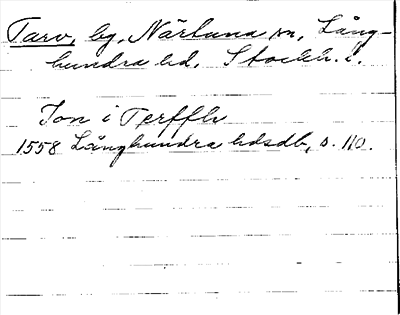 Tarv, by, Närtuna sn, Lång-
hundra hd. Stockh. l.
Jon i Terffh
1558 Långhundra hdsdb, s. 110.